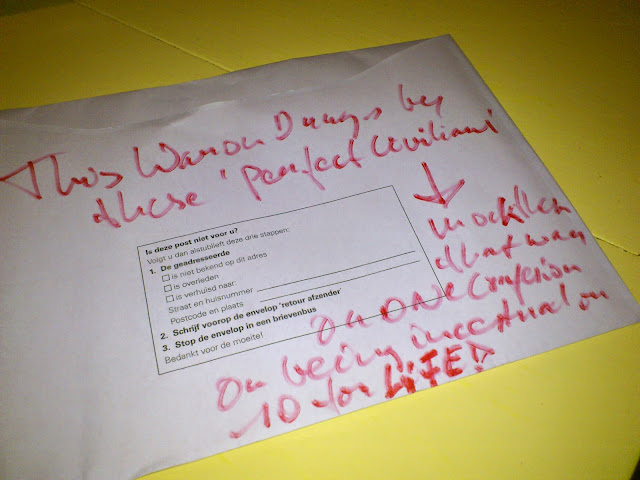 This War on Drugs by
these 'perfect Civilians'
↓
that way
Is deze post niet voor u?
Volgt u dan alstublieft deze drie stappen:
1. De geadresseerde
☐ is niet bekend op dit adres
☐ is overleden
☐ is verhuisd naar:
Straat en huisnummer
Postcode en plaats
2. Schrijf voorop de envelop 'retour afzender'
3. Stop de envelop in een brievenbus
Bedankt voor de moeite!
ONE
On being
10 for LIFE!